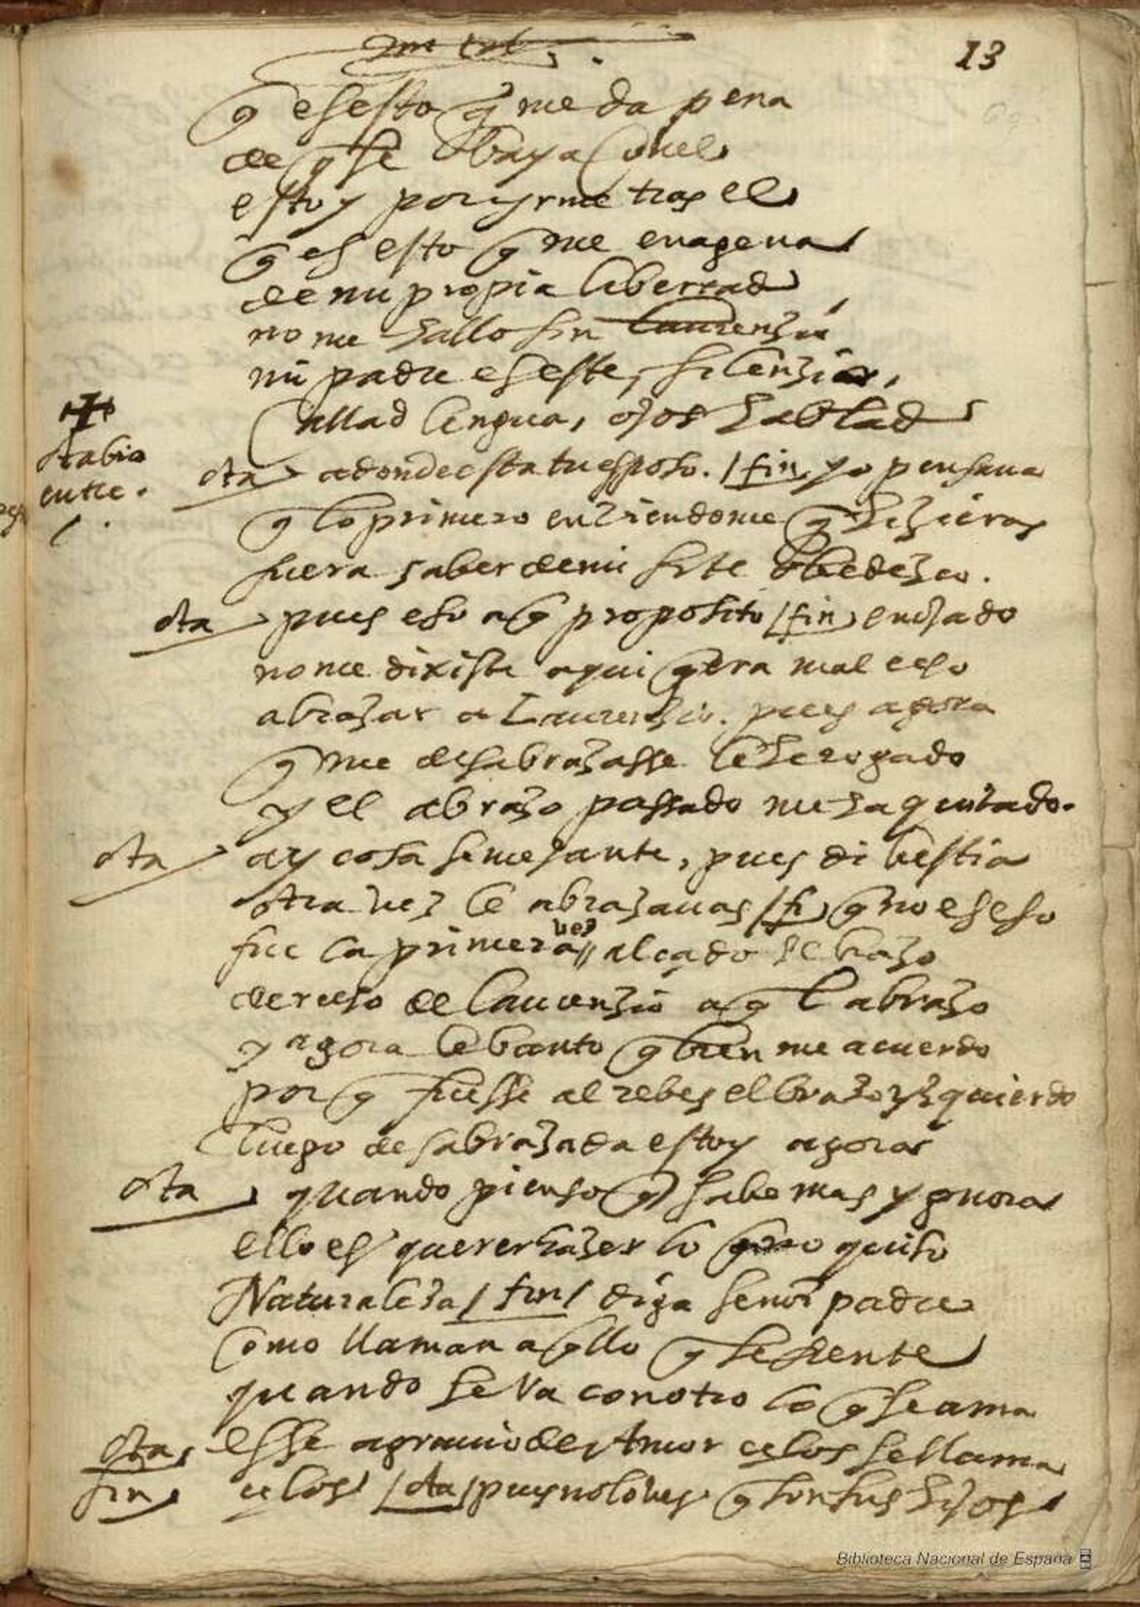 13
q es esto q me da pena
de q se baya con el
estoy por yrme tras el
q es esto q me enagena
de mi propia libertad
no me hallo sin Laurenzio
mi padre es este, silenzio,
callad lengua, ojos hablad
otabio
entre.
ota adonde esta tu esposo. / fin yo pensaua
q lo primero en biendome q hizieras
fuera saber de mi si te obedezco.
ota pues eso a q proposito / fin enojado
no me dixiste aqui q era mal echo
abrazar a Laurenzio. pues agora
q me desabrazasse le he rogado
y el abrazo passado me ha quitado.
ota ay cosa semejante, pues di bestia
otra vez le abrazauas / fi q no es eso
fue la primera vez alçado el brazo
derecho de Laurenzio a ql abrazo
y agora lebanto q bien me acuerdo
por q fuesse al rebes el brazo yzquierdo
luego desabrazada estoy agora
ota quando pienso q sabe mas ygnora
ello es querer hazer lo q no quiso
Naturaleza / fin / diga señor padre
como llaman aqllo q se siente
quando se va con otro lo q se ama
ota, esse agrauio de Amor celos se llama
fin celos / ota / pues no lo ves q son sus hijos
Biblioteca Nacional de España